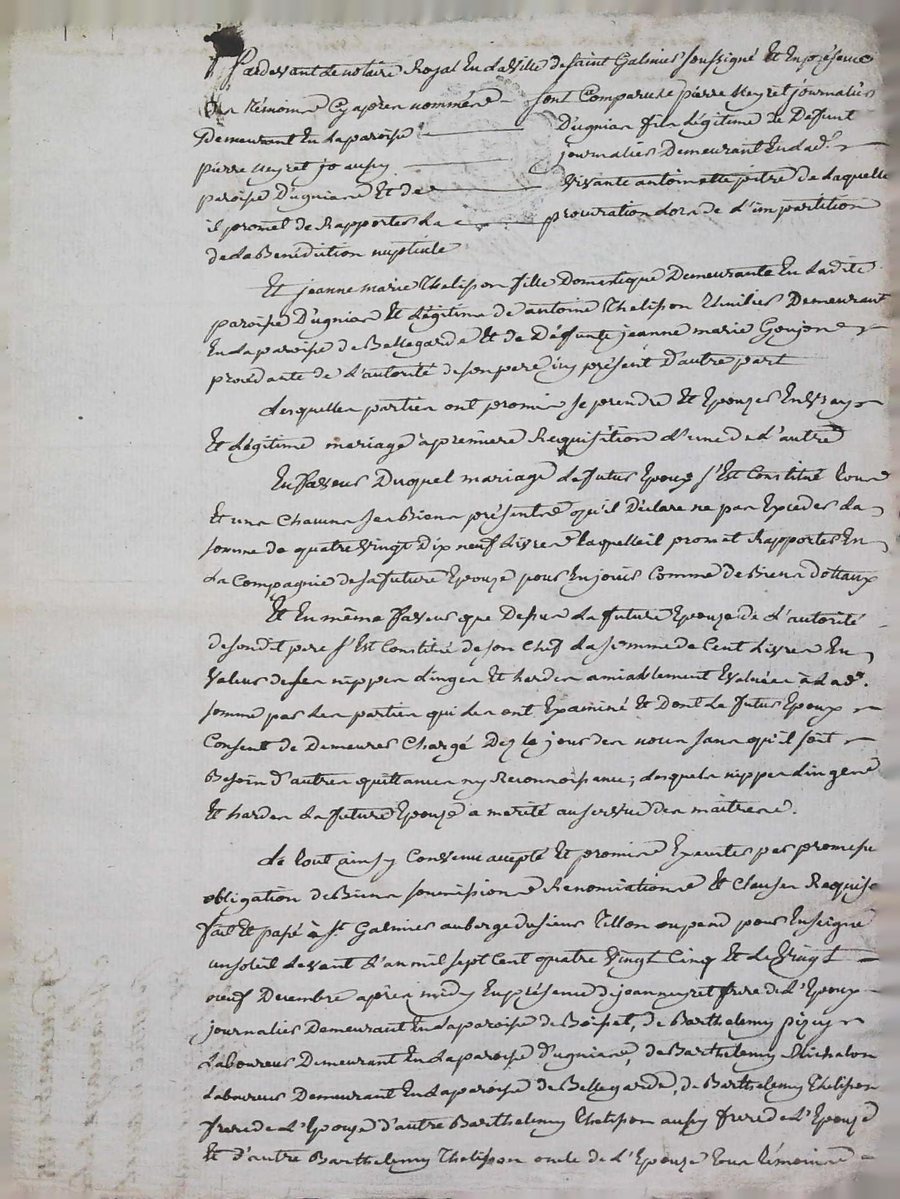 Pardevant le notaire Royal En la Ville de Saint Galmier soussigné Et En présence
Des témoins Cy apres nommés sont Comparu le pierre neyret journalier
Demeurant En la paroisse D'ugnias fils légitime de Defunt
pierre neyret jo aussy journalier Demeurant En lad.e
paroisse D'ugnias Et de Vivante antoinette de laquelle
il promet de Rapporter la procuration lors de l'impartition
de la Benédiction nuptiale
Et jeanne marie Thelisson fille Domestique Demeurante En ladite
paroisse D'ugnias Et légitime de antoine Thelisson Demeurant
En la paroisse de Bellegarde Et de Défunte jeanne marie Goujon
procédante de l'autorité de son pere icy présent D'autre part
lesquelles parties ont promis se prendre Et Epouser En vray
Et légitime mariage à premiere Requisition l'une de l'autre
En faveur Duquel mariage le futur Epoux s'Est Constitué tous
Et uns Chacuns ses Biens présents qu'il Déclare ne pas Excéder la
somme de quatre vingt Dix neuf livres laquelle il promet Rapporter En
la Compagnie de sa future Epouse pour En jouir Comme de Biens dottaux
Et En même faveur que Dessus la future Epouse de l'autorité
de sondit pere s'Est Constitué de son Chef la somme de Cent livres En
Valeur de ses nippes linges Et hardes amiablement Evaluées à lad.e
somme par les parties qui les ont Examiné Et Dont le futur Epoux
Consent de Demeurer Chargé Dez le jour des noces sans qu'il soit
Besoin d'autres quittances ny Reconnoissance; lesquels nippes linges
Et hardes la future Epouse a mérité au service des maitres.
le tout ainsy Convenu accepté Et promis Executer par promesse
obligation de Biens soumissions Renonciations Et Clauses Requises
fait Et passé à St Galmier auberge du sieur Tillon ou pend pour Enseigne
un soleil levant l'an mil sept Cent quatre Vingt Cinq Et le Vingt
neuf Decembre apres midy En présence de jean neyret frere de l'Epoux
journalier Demeurant En la paroisse de Boisset, de Barthelemy
Laboureur Demeurant En la paroisse d'ugnias, de Barthelemy Michalon
Laboureur Demeurant En la paroisse de Bellegarde, de Barthelemy Thelisson
frere de l'Epouse d'autre Barthelemy Thelisson aussy frere de l'Epouse
Et d'autre Barthelemy Thelisson oncle de l'Epouse tous témoins